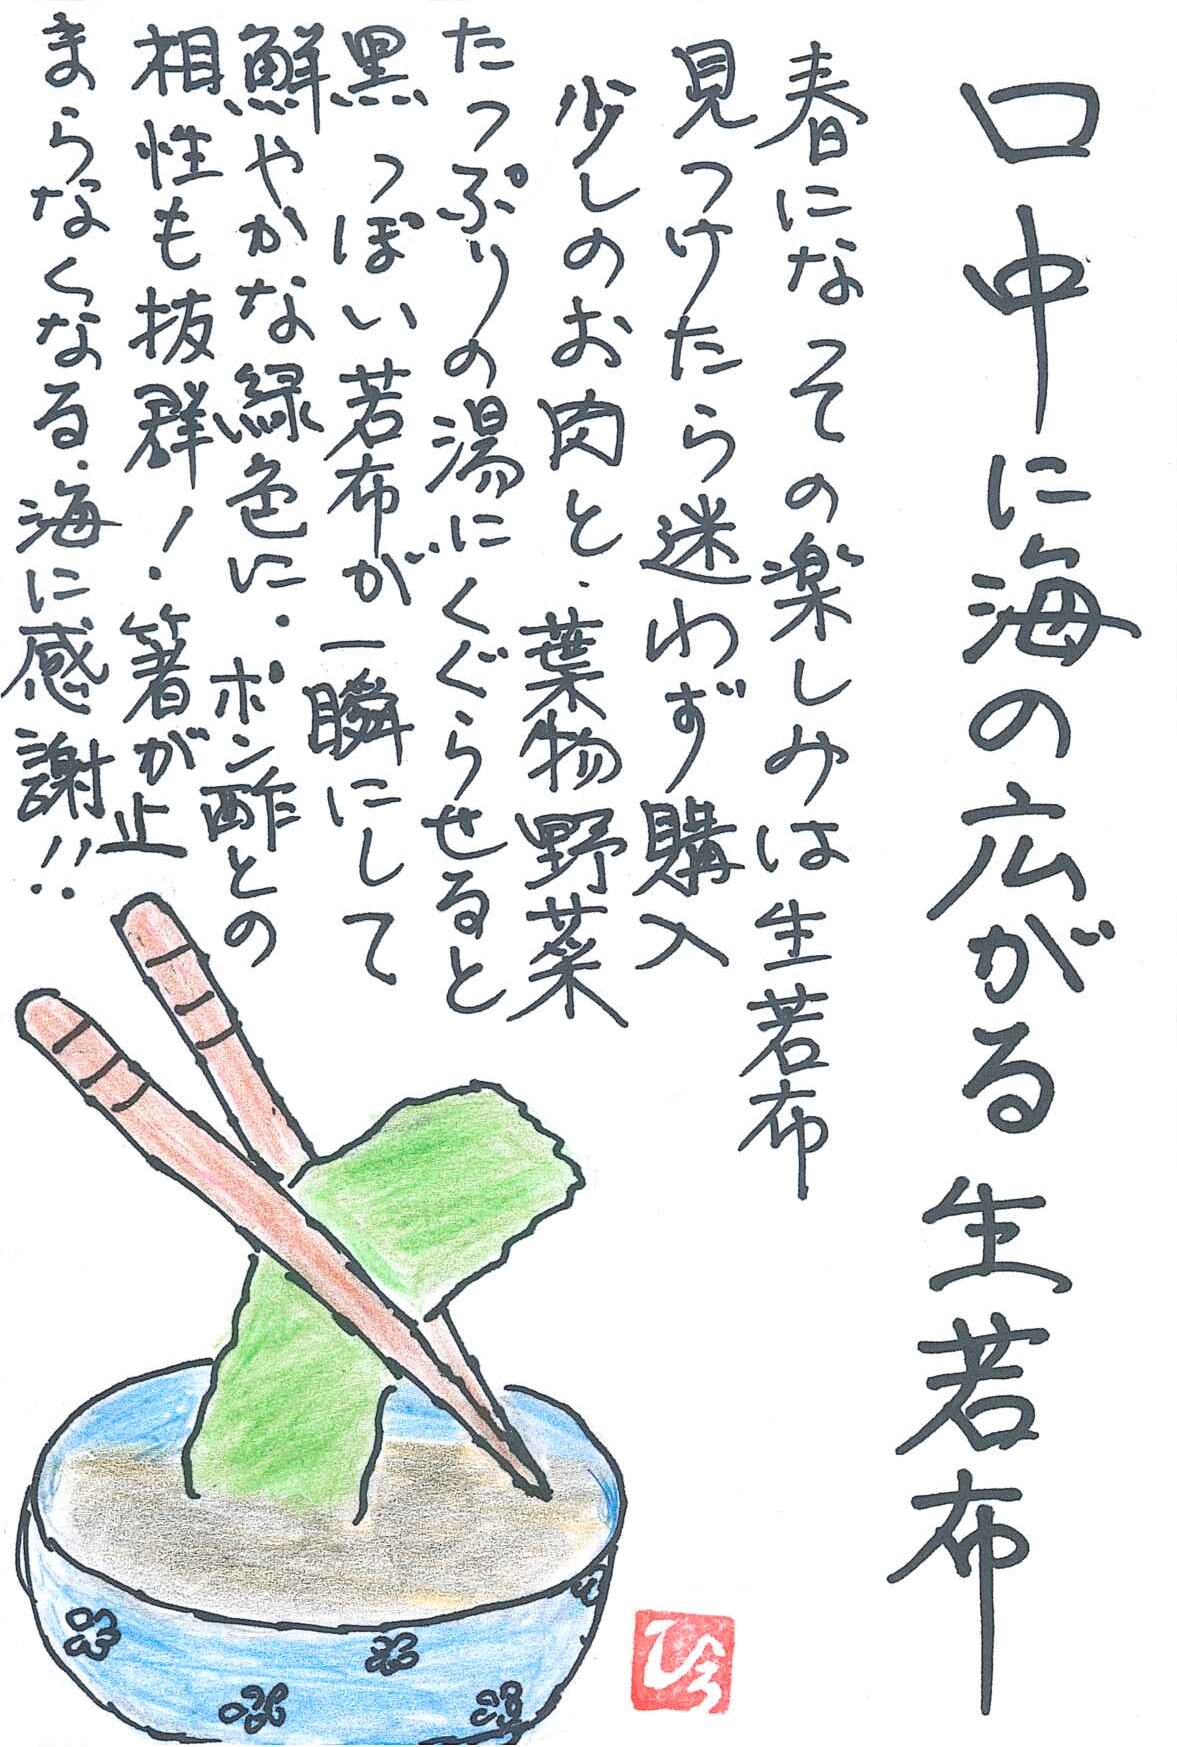 口中に海の広がる生若布
春になその楽しみは生若布
見つけたら迷わず購入
少しのお肉と、葉物野菜
たっぷりの湯にくぐらせると
黒っぽい若布が一瞬にして
鮮やかな緑色に。ポン酢との
相性も抜群!箸が止
まらなくなる。海に感謝!!
ひろ